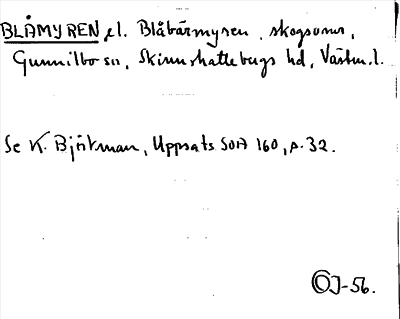 BLÅMYREN el. Blåbärmyren, skogsomr,
Gunnilbo sn, Skinnskattebergs hd, Västm.l.
Se K. Björkman, Uppsats SOA 160, s. 32.
OJ-56.